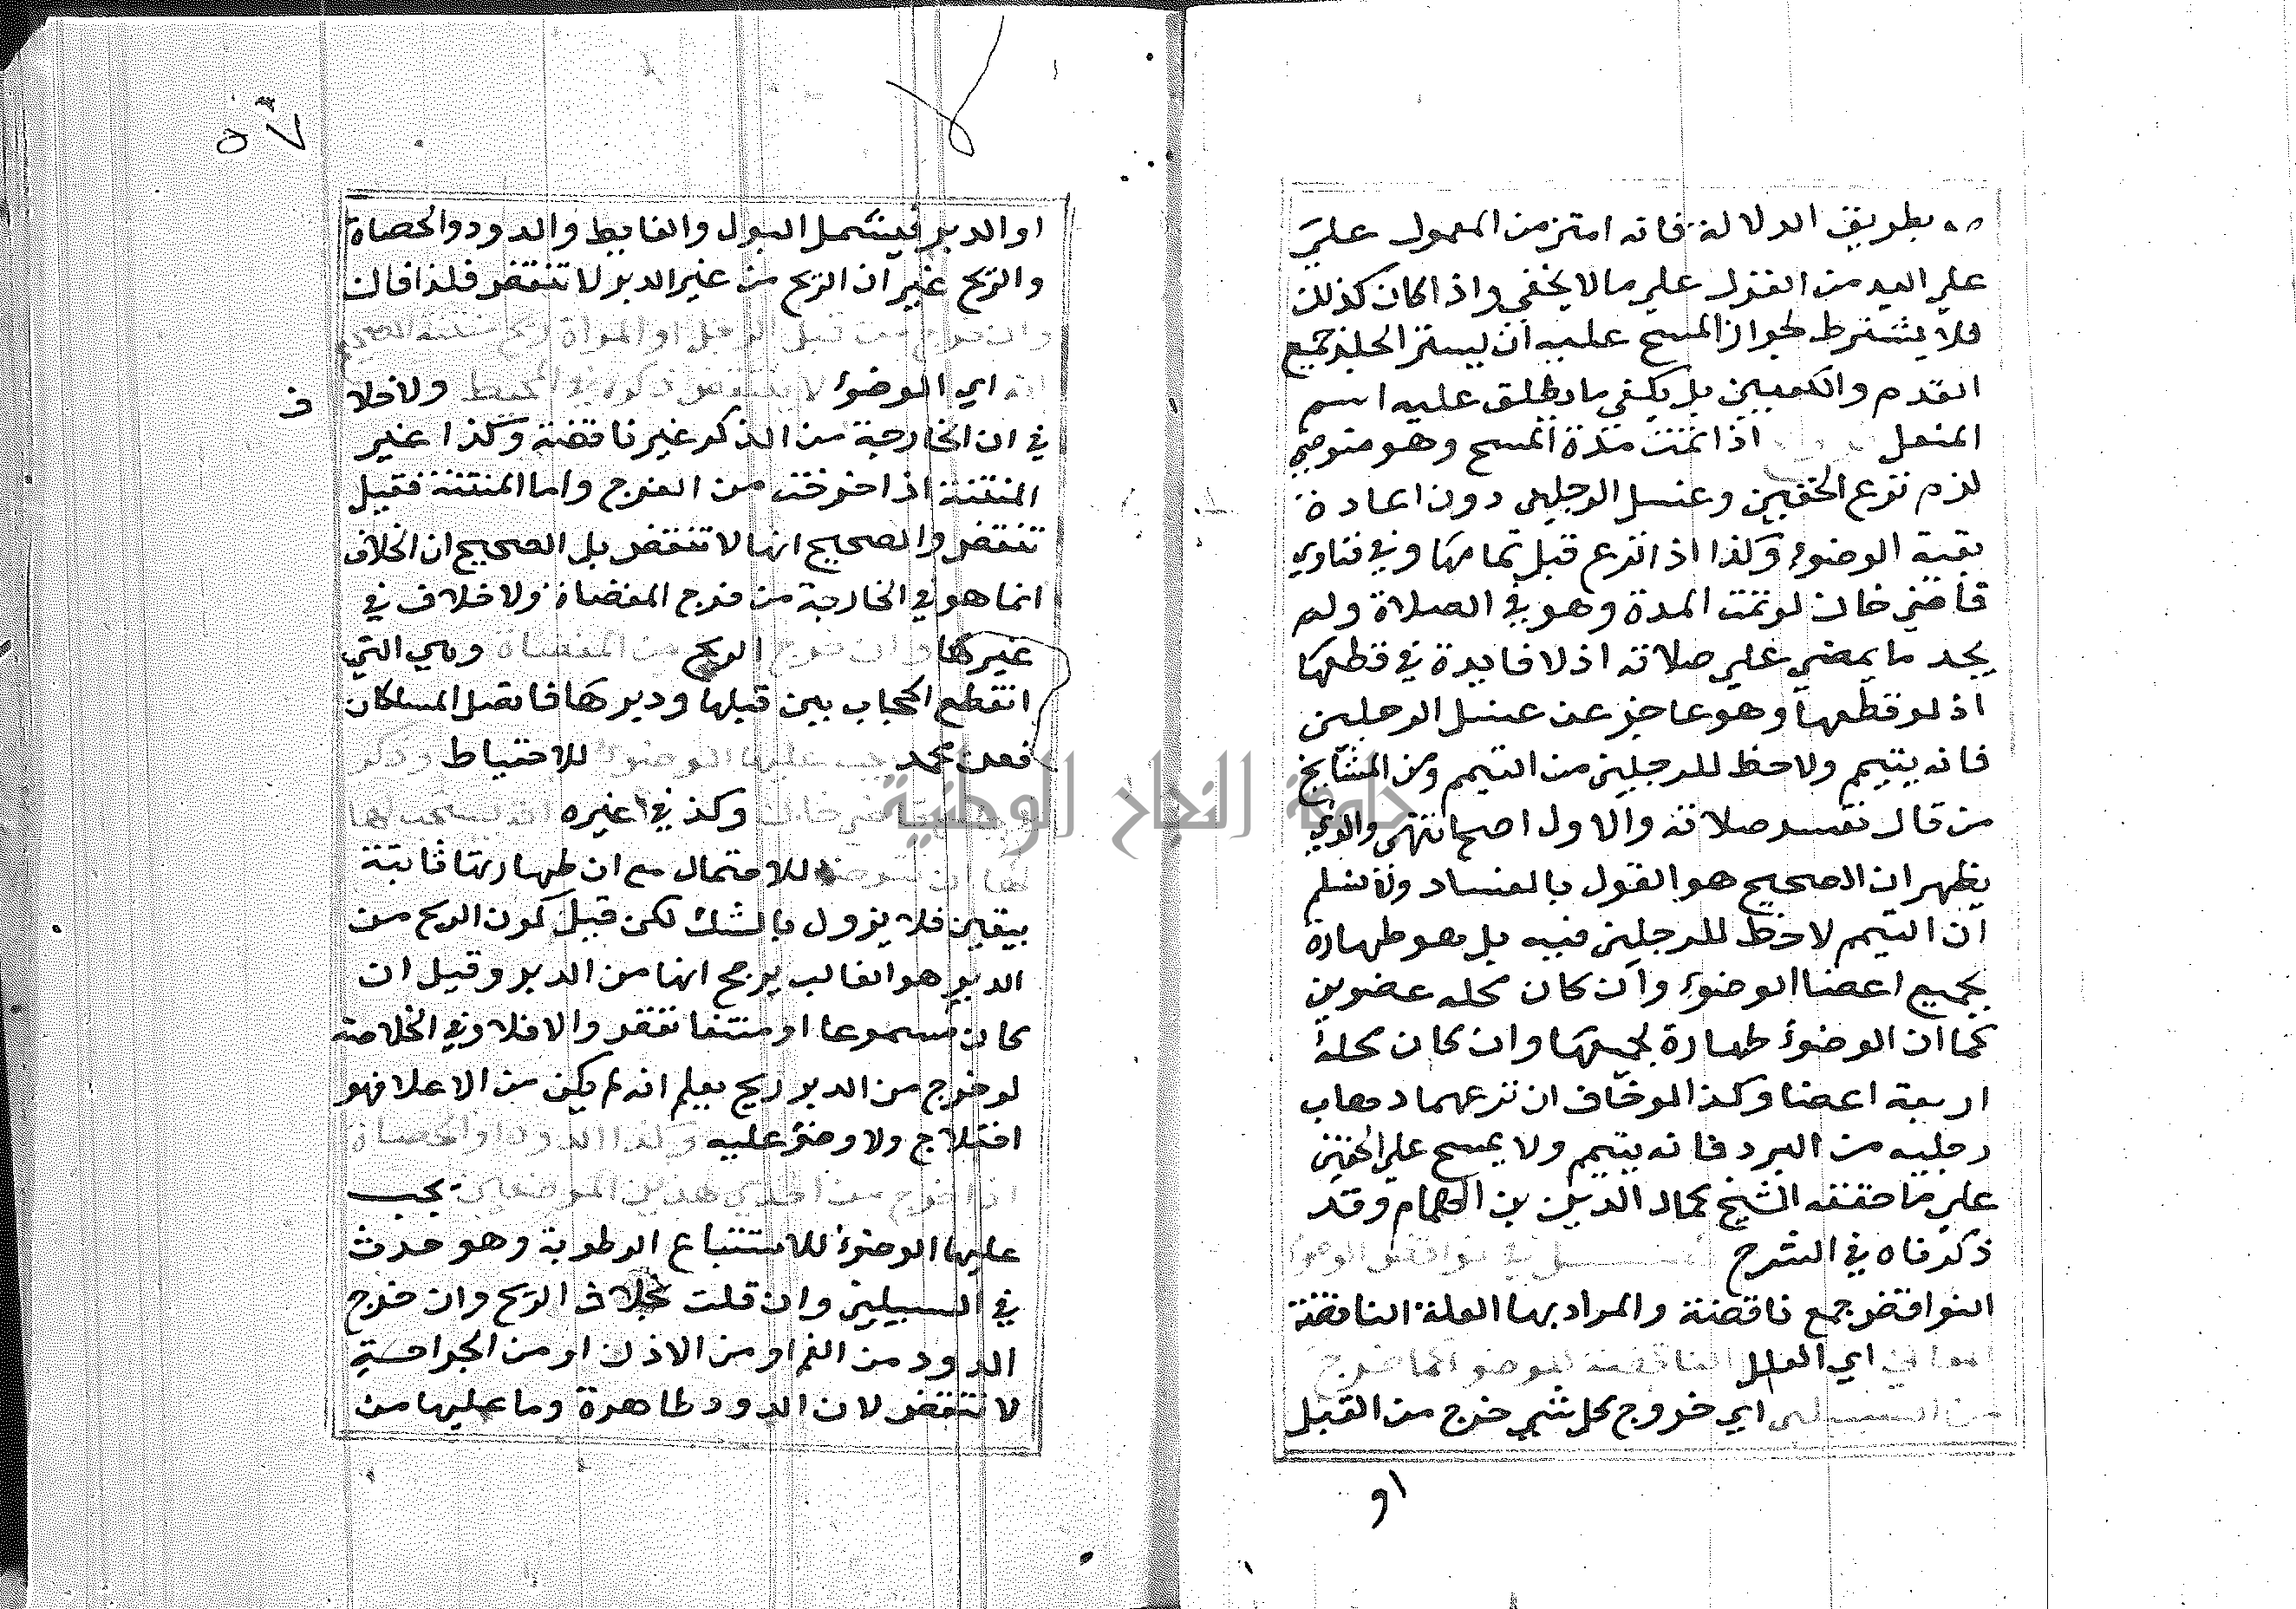 بطريق الدلالة فانه امتزمن المعمول علي
علي اليد من الغزل علي ما لا يخفي واذا كان كذلك
فلا يشترط لجواز المسح عليه ان يستر الجلد جميع
القدم والكعبين بل يكفي ما يطلق عليه اسم
المنعل اذا تمت مدة المسح وهو متوضي
لزم نزع الخفين وغسل الرجلين دون اعادة
بقية الوضوء وكذا اذا نزع قبل تمامها وفي فتاوي
قاضي خان لو تمت المدة وهو في الصلاة ولم
يجد ما يمضي علي صلاته اذ لا فايدة في قطعها
اذ لو قطعها وهو عاجز عن غسل الرجلين
فانه يتيمم ولا حظ للرجلين من التيمم ومن المشايخ
من قال تفسد صلاته والاول اصح انتهي والذي
يظهر ان الصحيح هو القول بالفساد ولا نسلم
ان التيمم لا حظ للرجلين فيه بل هو طهارة
لجميع اعضا الوضوء وان كان محله عضوين
كما ان الوضوء طهارة لجميعها وان كان محله
اربعة اعضا وكذا لو خاف ان نزعهما ذهاب
رجليه من البرد فانه يتيمم ولا يمسح علي الخفين
علي ما حققه الشيخ كمال الدين بن الهمام وقد
ذكرناه في الشرح فصل في نواقض الوضوء
النواقض جمع ناقضة والمراد بها العلة الناقضة
المعاني اي العلل الناقضة للوضوء كلما خرج
من السبيلين اي خروج كل شي خرج من القبل
او
٥٧
او الدبر فيشمل البول والغايط والدود والحصاة
والريح غير ان الريح من غير الدبر لا تنقض فلذا قال
وان خرج من قبل الرجل او المراة ريح منتنة الصحيح
انه اي الوضوء لا ينتقض ذكره في المحيط ولا خلاف
في ان الخارجة من الذكر غير ناقضة وكذا غير
المنتنة اذا خرجت من الفرج واما المنتنة فقيل
تنقض والصحيح انها لا تنقض بل الصحيح ان الخلاف
انما هو في الخارجة من فرج المفضاة ولا خلاف في
غيرها وان خرج الريح من المفضاة وهي التي
انقطع الحجاب بين قبلها ودبرها فاتصل المسلكان
فعن محمد يجب عليها الوضوء للاحتياط وذكر
في قاضي خان وكذا في غيره انه يستحب لها
لها ان تتوضا للاحتمال مع ان طهارتها ثابتة
بيقين فلا يزول بالشك لكن قيل كون الريح من
الدبر هو الغالب يرجح انها من الدبر وقيل ان
كان مسموعا او منتنا نقض والا فلا وفي الخلاصة
لو خرج من الدبر ريح يعلم انه لم يكن من الاعلا فهو
اختلاج ولا وضوء عليه وكذا الدود او الحصاة
اذا خرج من احدي هذين الموضعين يجب
عليها الوضوء للاستتباع الرطوبة وهو حدث
في السبيلين وان قلت بخلاف الريح وان خرج
الدود من الفم او من الاذن او من الجراحة
لا تنقض لان الدود طاهرة وما عليها من